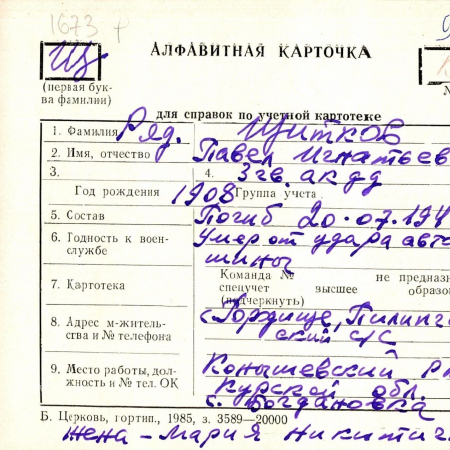 1673 р
Щ
АЛФАВИТНАЯ КАРТОЧКА
(первая бук-
ва фамилии)
для справок по учетной картотеке
1. Фамилия Ряд. Щитков
2. Имя, отчество Павел Игнатьев
3. 4. 3 гв. ак дд
Год рождения 1908 Группа учета
5. Состав Погиб 20.07.194
6. Годность к воен- Умер от удара авто
службе шины
Команда № не предназ
7. Картотека спецучет высшее образо
(подчеркнуть)
8. Адрес м-житель- с. Гордище,
ства и № телефона ский с/с
9. Место работы, дол- Конышевский
жность и № тел. ОК Курской обл.
с. Богдановка
Б. Церковь, гортип., 1985, з. 3589—20000
жена - Мария Никитич